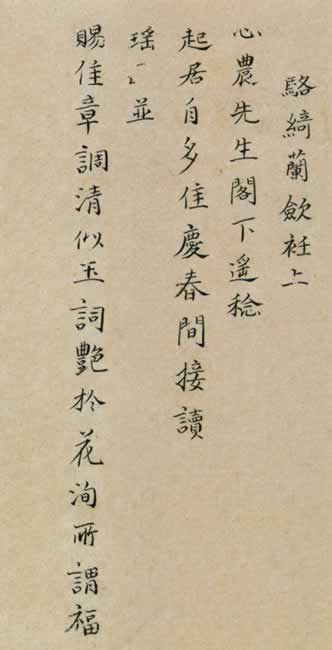 駱綺蘭斂衽上
心農先生閣下遙稔
起居自多佳慶春間接讀
瑶並
賜佳章調清似玉詞艷於花洵所謂福